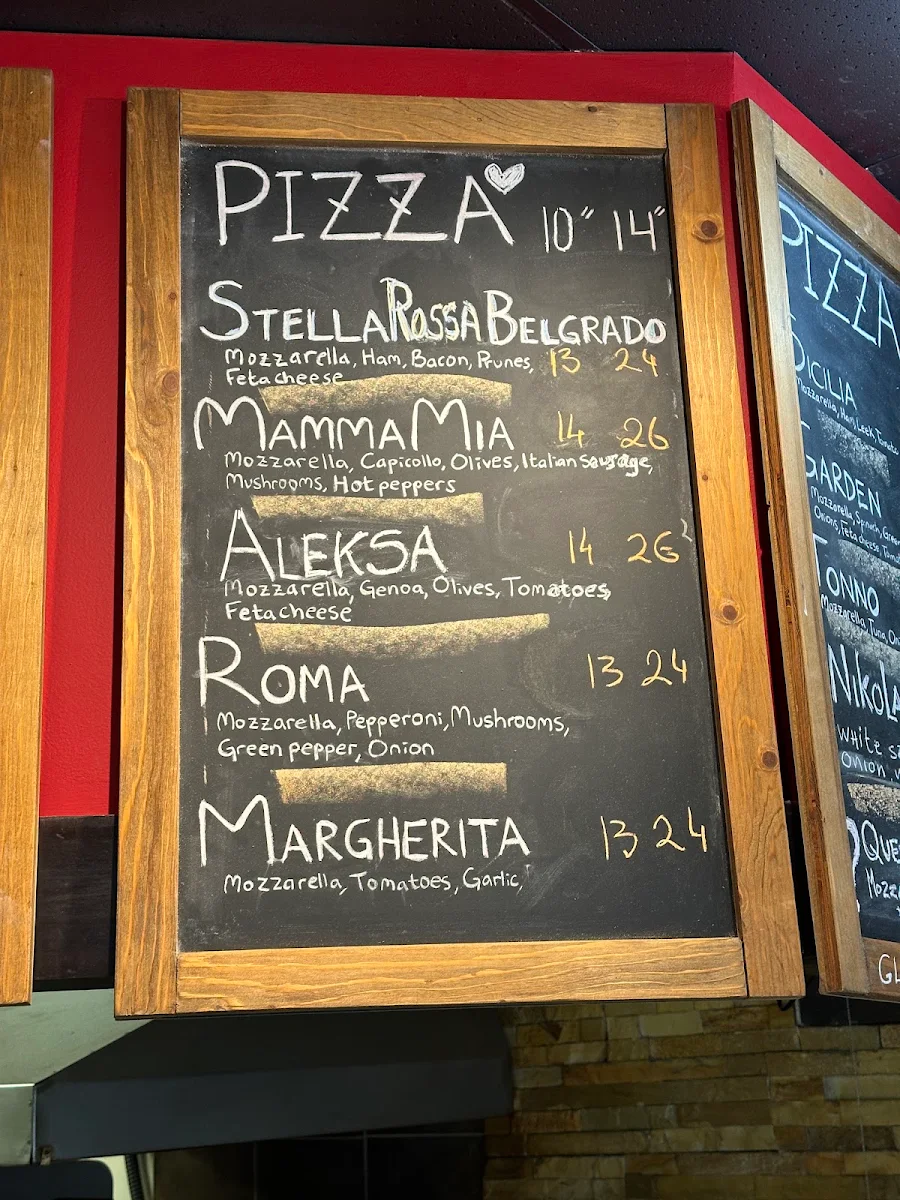 PIZZA 10" 14"
STELLA ROSSA BELGRADO
Mozzarella, Ham, Bacon, Prunes, 13 24
Feta cheese
MAMMA MIA 14 26
Mozzarella, Capicollo, Olives, Italian sausage,
Mushrooms, Hot peppers
ALEKSA 14 26
Mozzarella, Genoa, Olives, Tomatoes,
Feta cheese
ROMA 13 24
Mozzarella, Pepperoni, Mushrooms,
Green pepper, Onion
MARGHERITA 13 24
Mozzarella, Tomatoes, Garlic,
PIZZA
SICILIA
Mozzarella, Ham, Leek, Tomato
GARDEN
Mozzarella, Spinach, Green
Onions, Feta cheese, Tom
TONNO
Mozzarella, Tuna, On
NIKOLA
White s
Onion
QUE
Mozz
GL